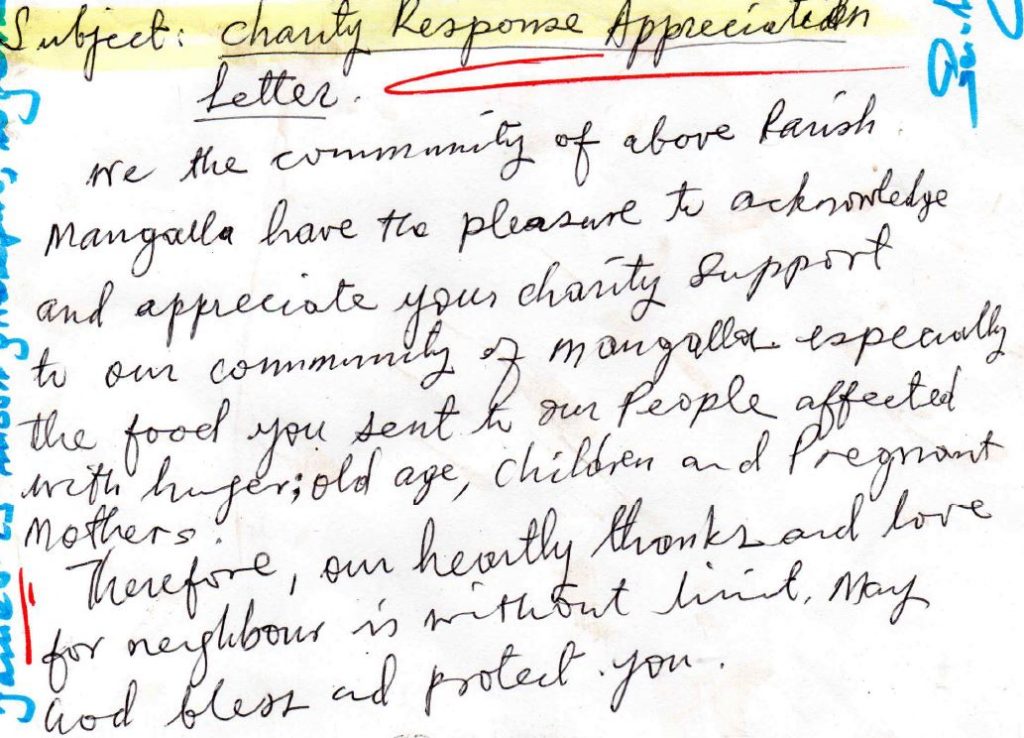 Subject: Charity Response Appreciation
Letter.
We the community of above Parish
Mangalla have the pleasure to acknowledge
and appreciate your charity support
to our community of Mangalla especially
the food you sent to our People affected
with huger; old age, children and Pregnant
Mothers.
Therefore, our heartly thanks and love
for neighbour is without limit. May
God bless ad protect you.